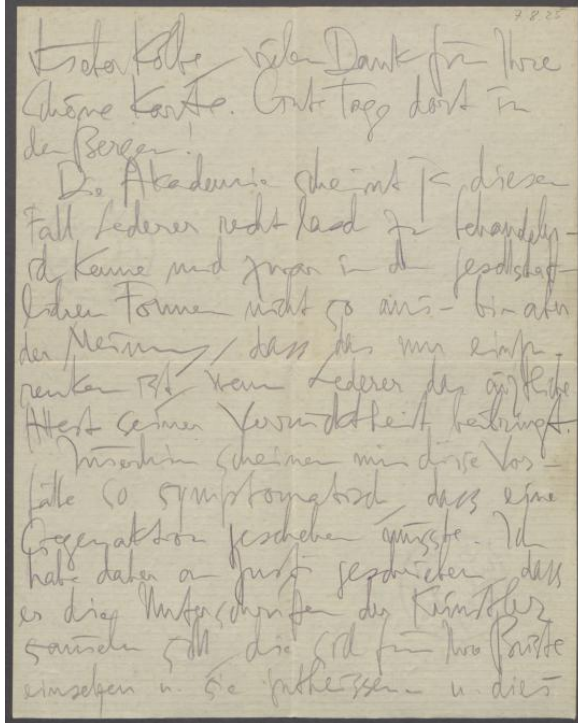 7.8.25
Lieber Kolbe, vielen Dank für Ihre
schöne Karte. Gute Tage dort in
den Bergen!
Die Akademie scheint ja diesen
Fall Lederer recht zu behandeln –
ich kenne mich zwar in den gesellschaft-
lichen Formen nicht so aus – bin aber
der Meinung, dass das nur einzu-
renken ist, wenn Lederer das ärztliche
Attest seiner Verrücktheit beibringt.
Immerhin scheinen mir diese Vor-
fälle so symptomatisch, dass eine
Gegenaktion geschehen müsste. Ich
habe daher an Justi geschrieben, dass
er die Unterschriften der Künstler
sammeln soll, die sich für Ihre Büste
einsetzen u. sie gutheissen – u. dies